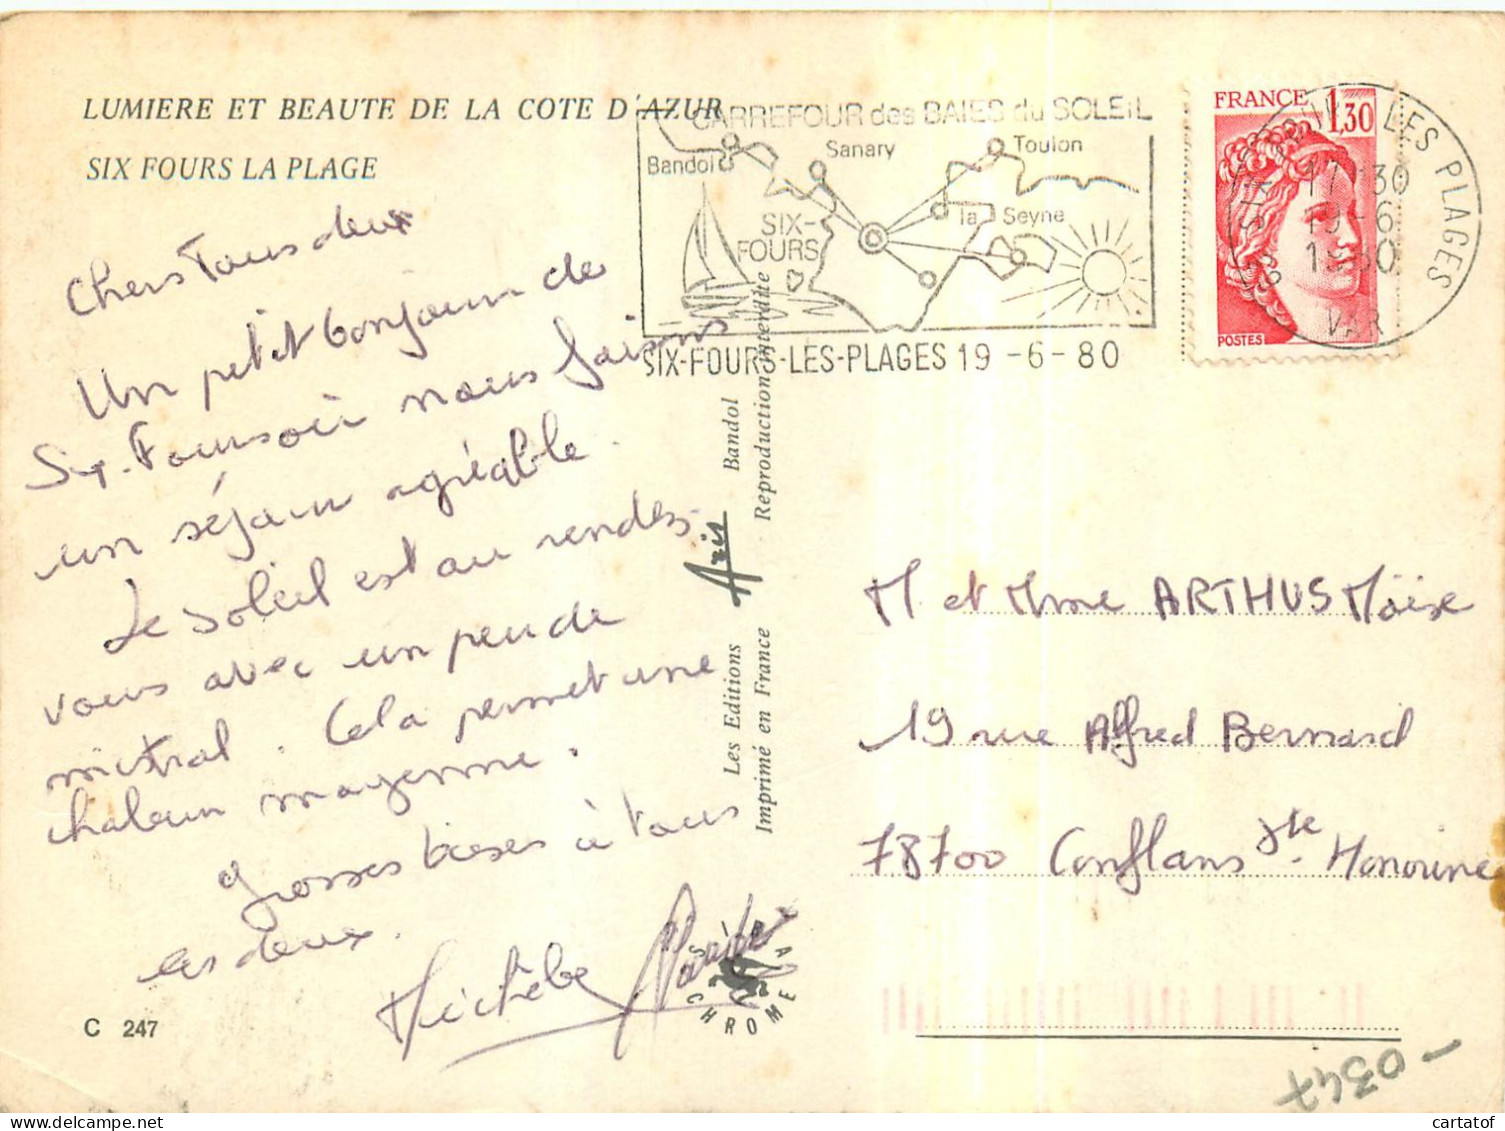 LUMIERE ET BEAUTE DE LA COTE D'AZUR
SIX FOURS LA PLAGE
Chers Tous deux
Un petit bonjour de
Six-Fours où nous faisons
un séjour agréable.
Le soleil est au rendez-
vous avec un peu de
mistral. Cela permet une
chaleur moyenne.
Grosses bises à tous
les deux.
Michèle
C 247
CARREFOUR des BAIES du SOLEIL
Bandol
Sanary
Toulon
la Seyne
SIX-
FOURS
SIX-FOURS-LES-PLAGES 19 -6- 80
FRANCE 1,30
POSTES
LES PLAGES
17 30
19 - 6
1980
VAR
Les Editions Aris Bandol
Imprimé en France Reproduction interdite
CHROME
M et Mme ARTHUS Moïse
19 rue Alfred Bernard
78700 Conflans Ste-Honorine
-0347
cartatof